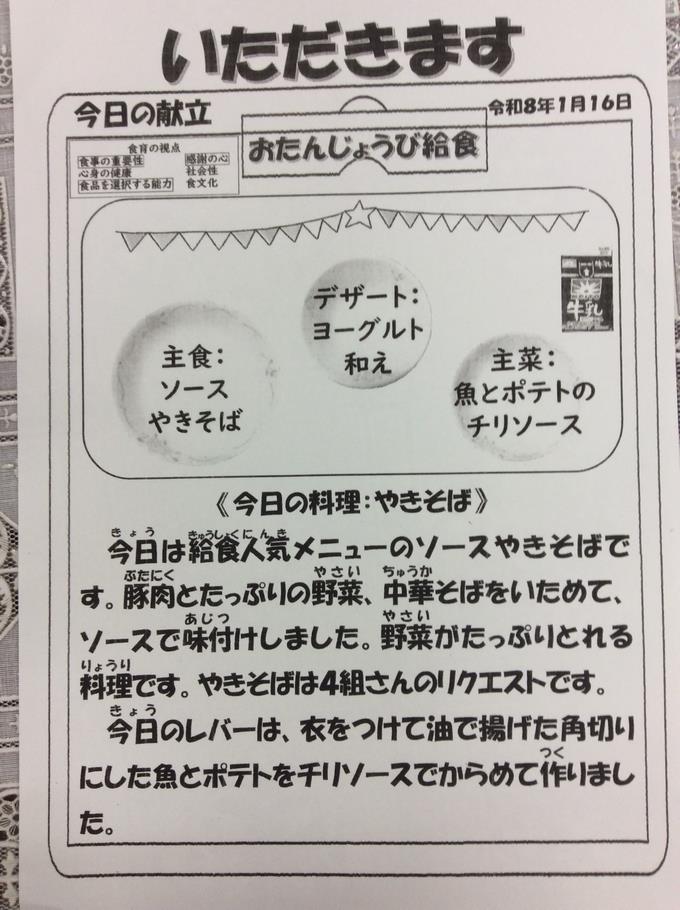 いただきます
今日の献立
令和8年1月16日
おたんじょうび給食
食育の視点
食事の重要性
感謝の心
心身の健康
社会性
食品を選択する能力
食文化
牛乳
デザート：
ヨーグルト
和え
主食：
ソース
やきそば
主菜：
魚とポテトの
チリソース
《今日の料理：やきそば》
きょう きゅうしょくにんき
今日は給食人気メニューのソースやきそばで
ぶたにく やさい ちゅうか
す。豚肉とたっぷりの野菜、中華そばをいためて、
あじつ やさい
ソースで味付けしました。野菜がたっぷりとれる
りょうり
料理です。やきそばは4組さんのリクエストです。
きょう
今日のレバーは、衣をつけて油で揚げた角切り
つく
にした魚とポテトをチリソースでからめて作りまし
た。